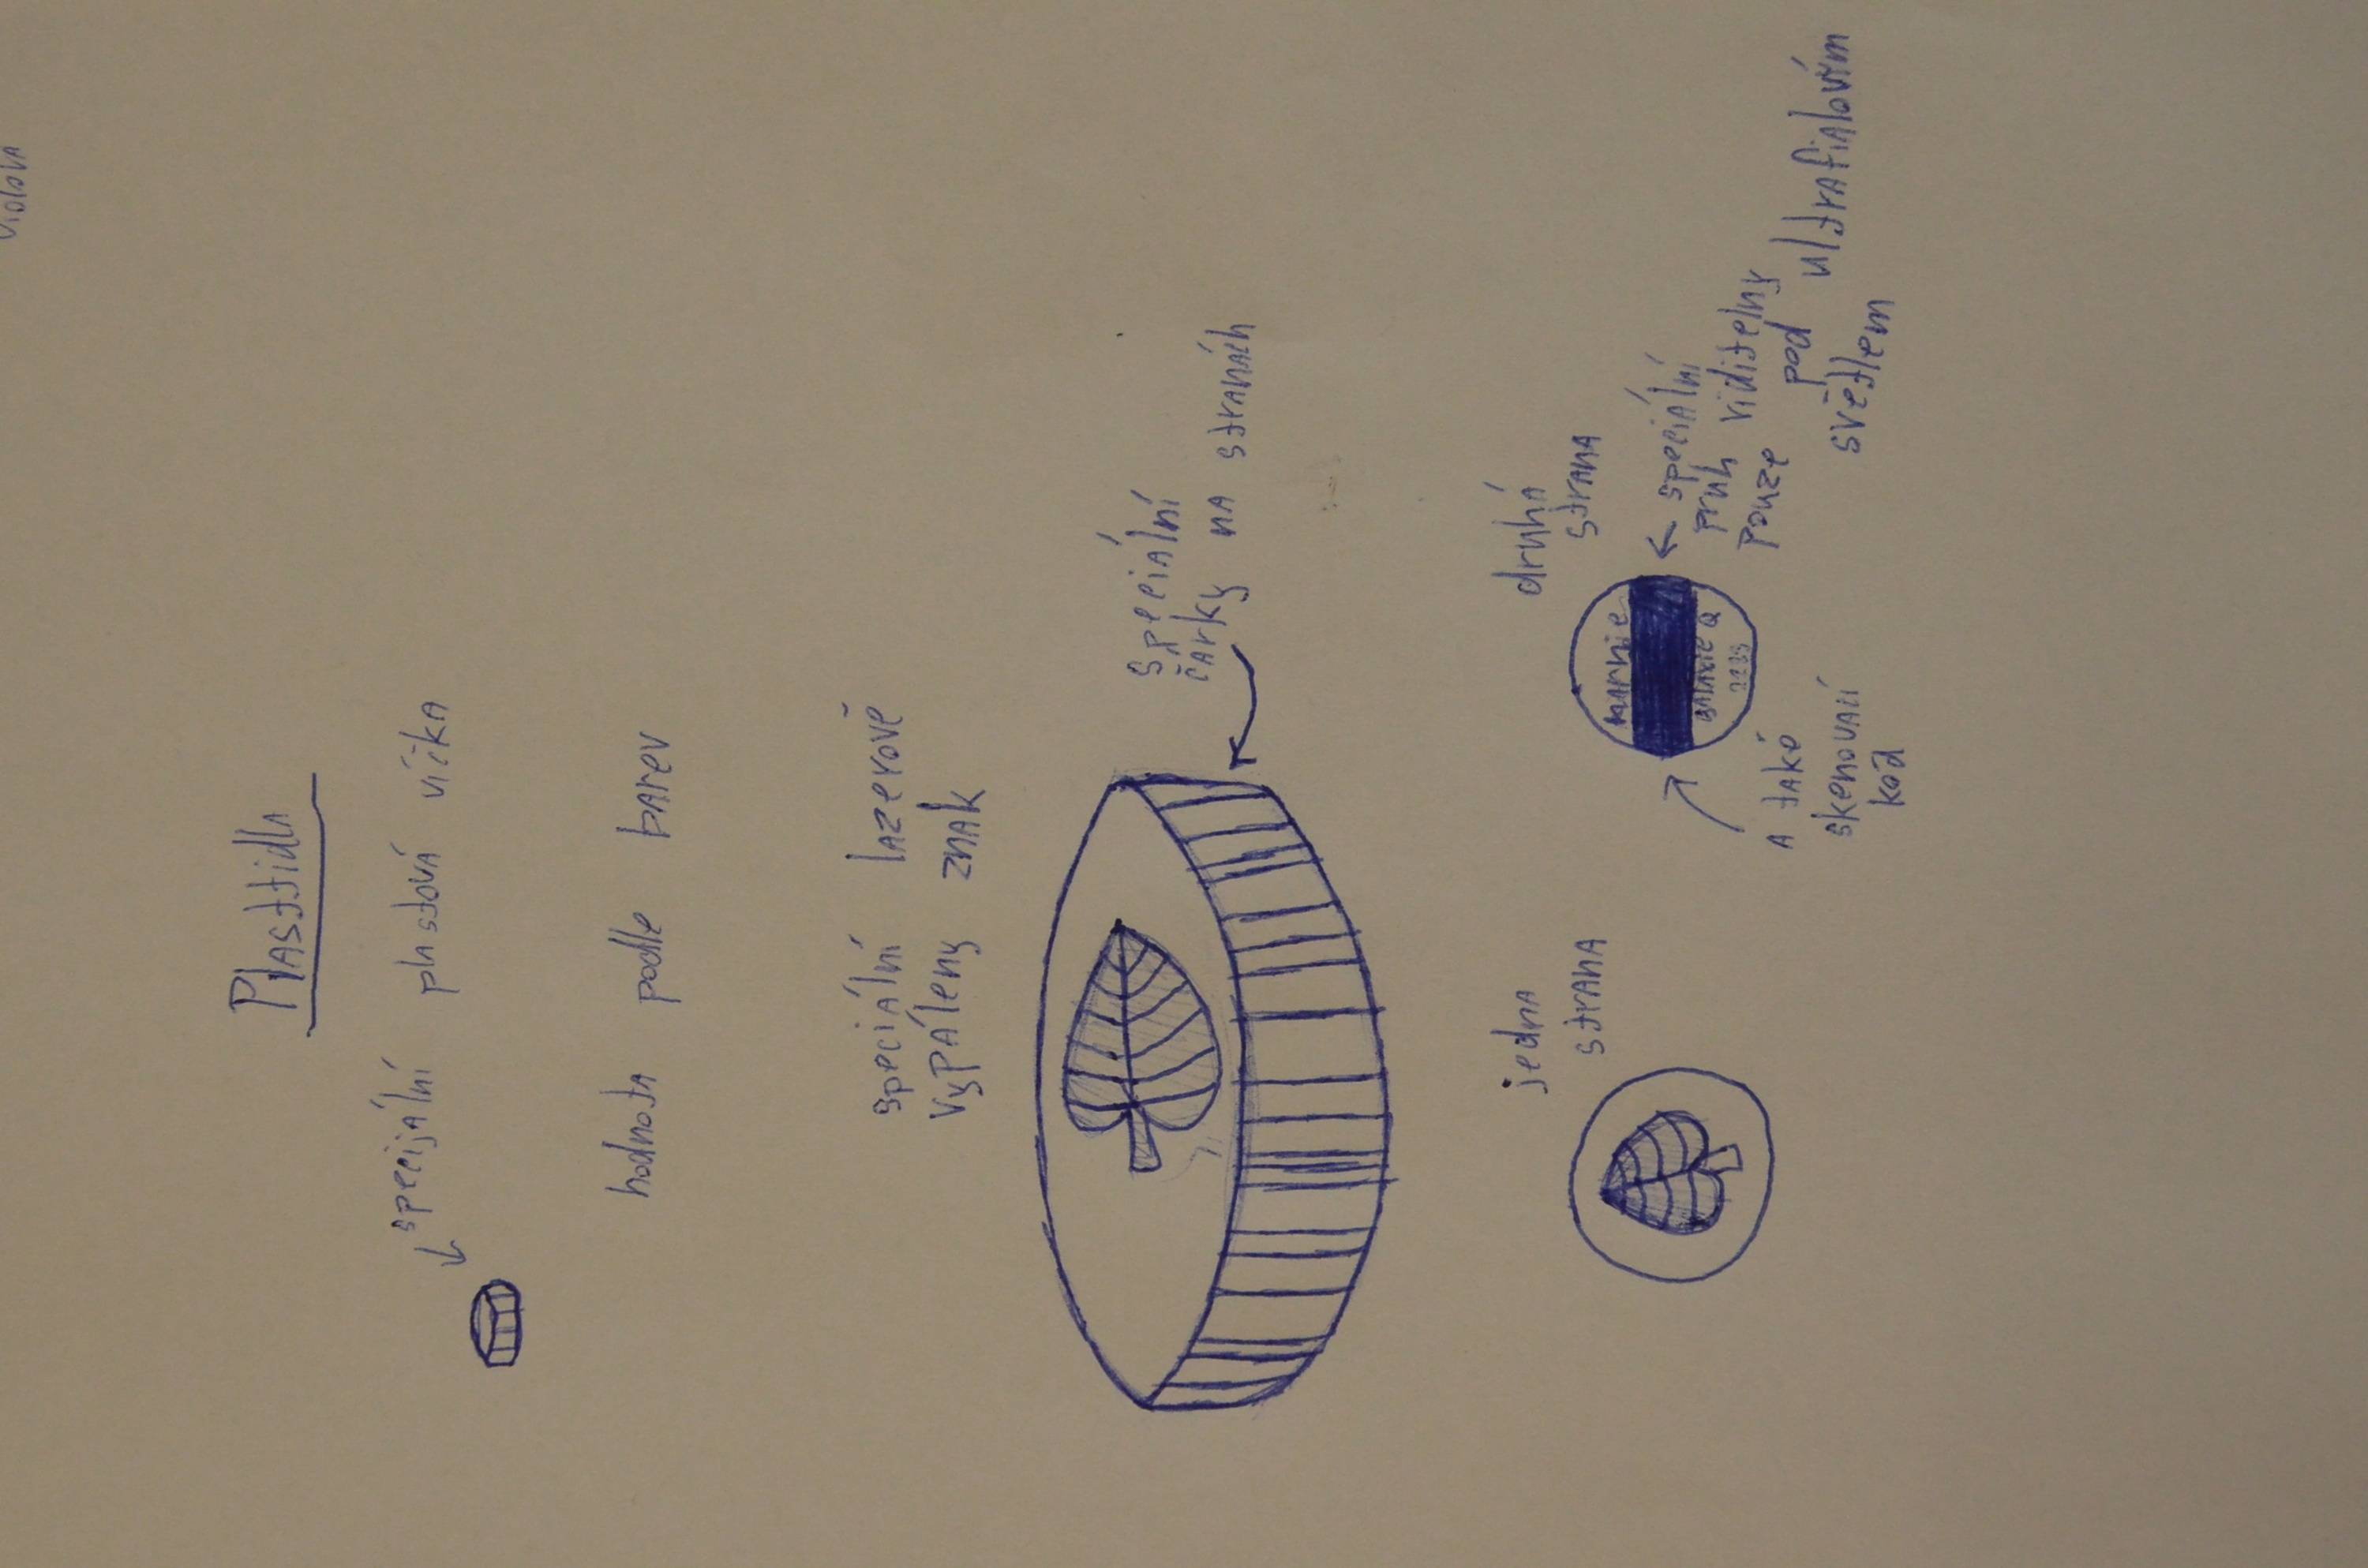 Plastidla
specijální plastová víčka
hodnota podle barev
speciální lazerově
vypálený znak
speciální
čárky na stranách
jedna
strana
druhá
strana
speciální
pruh viditelný
pouze pod ultrafialovím
světlem
a také
skenovací
kód